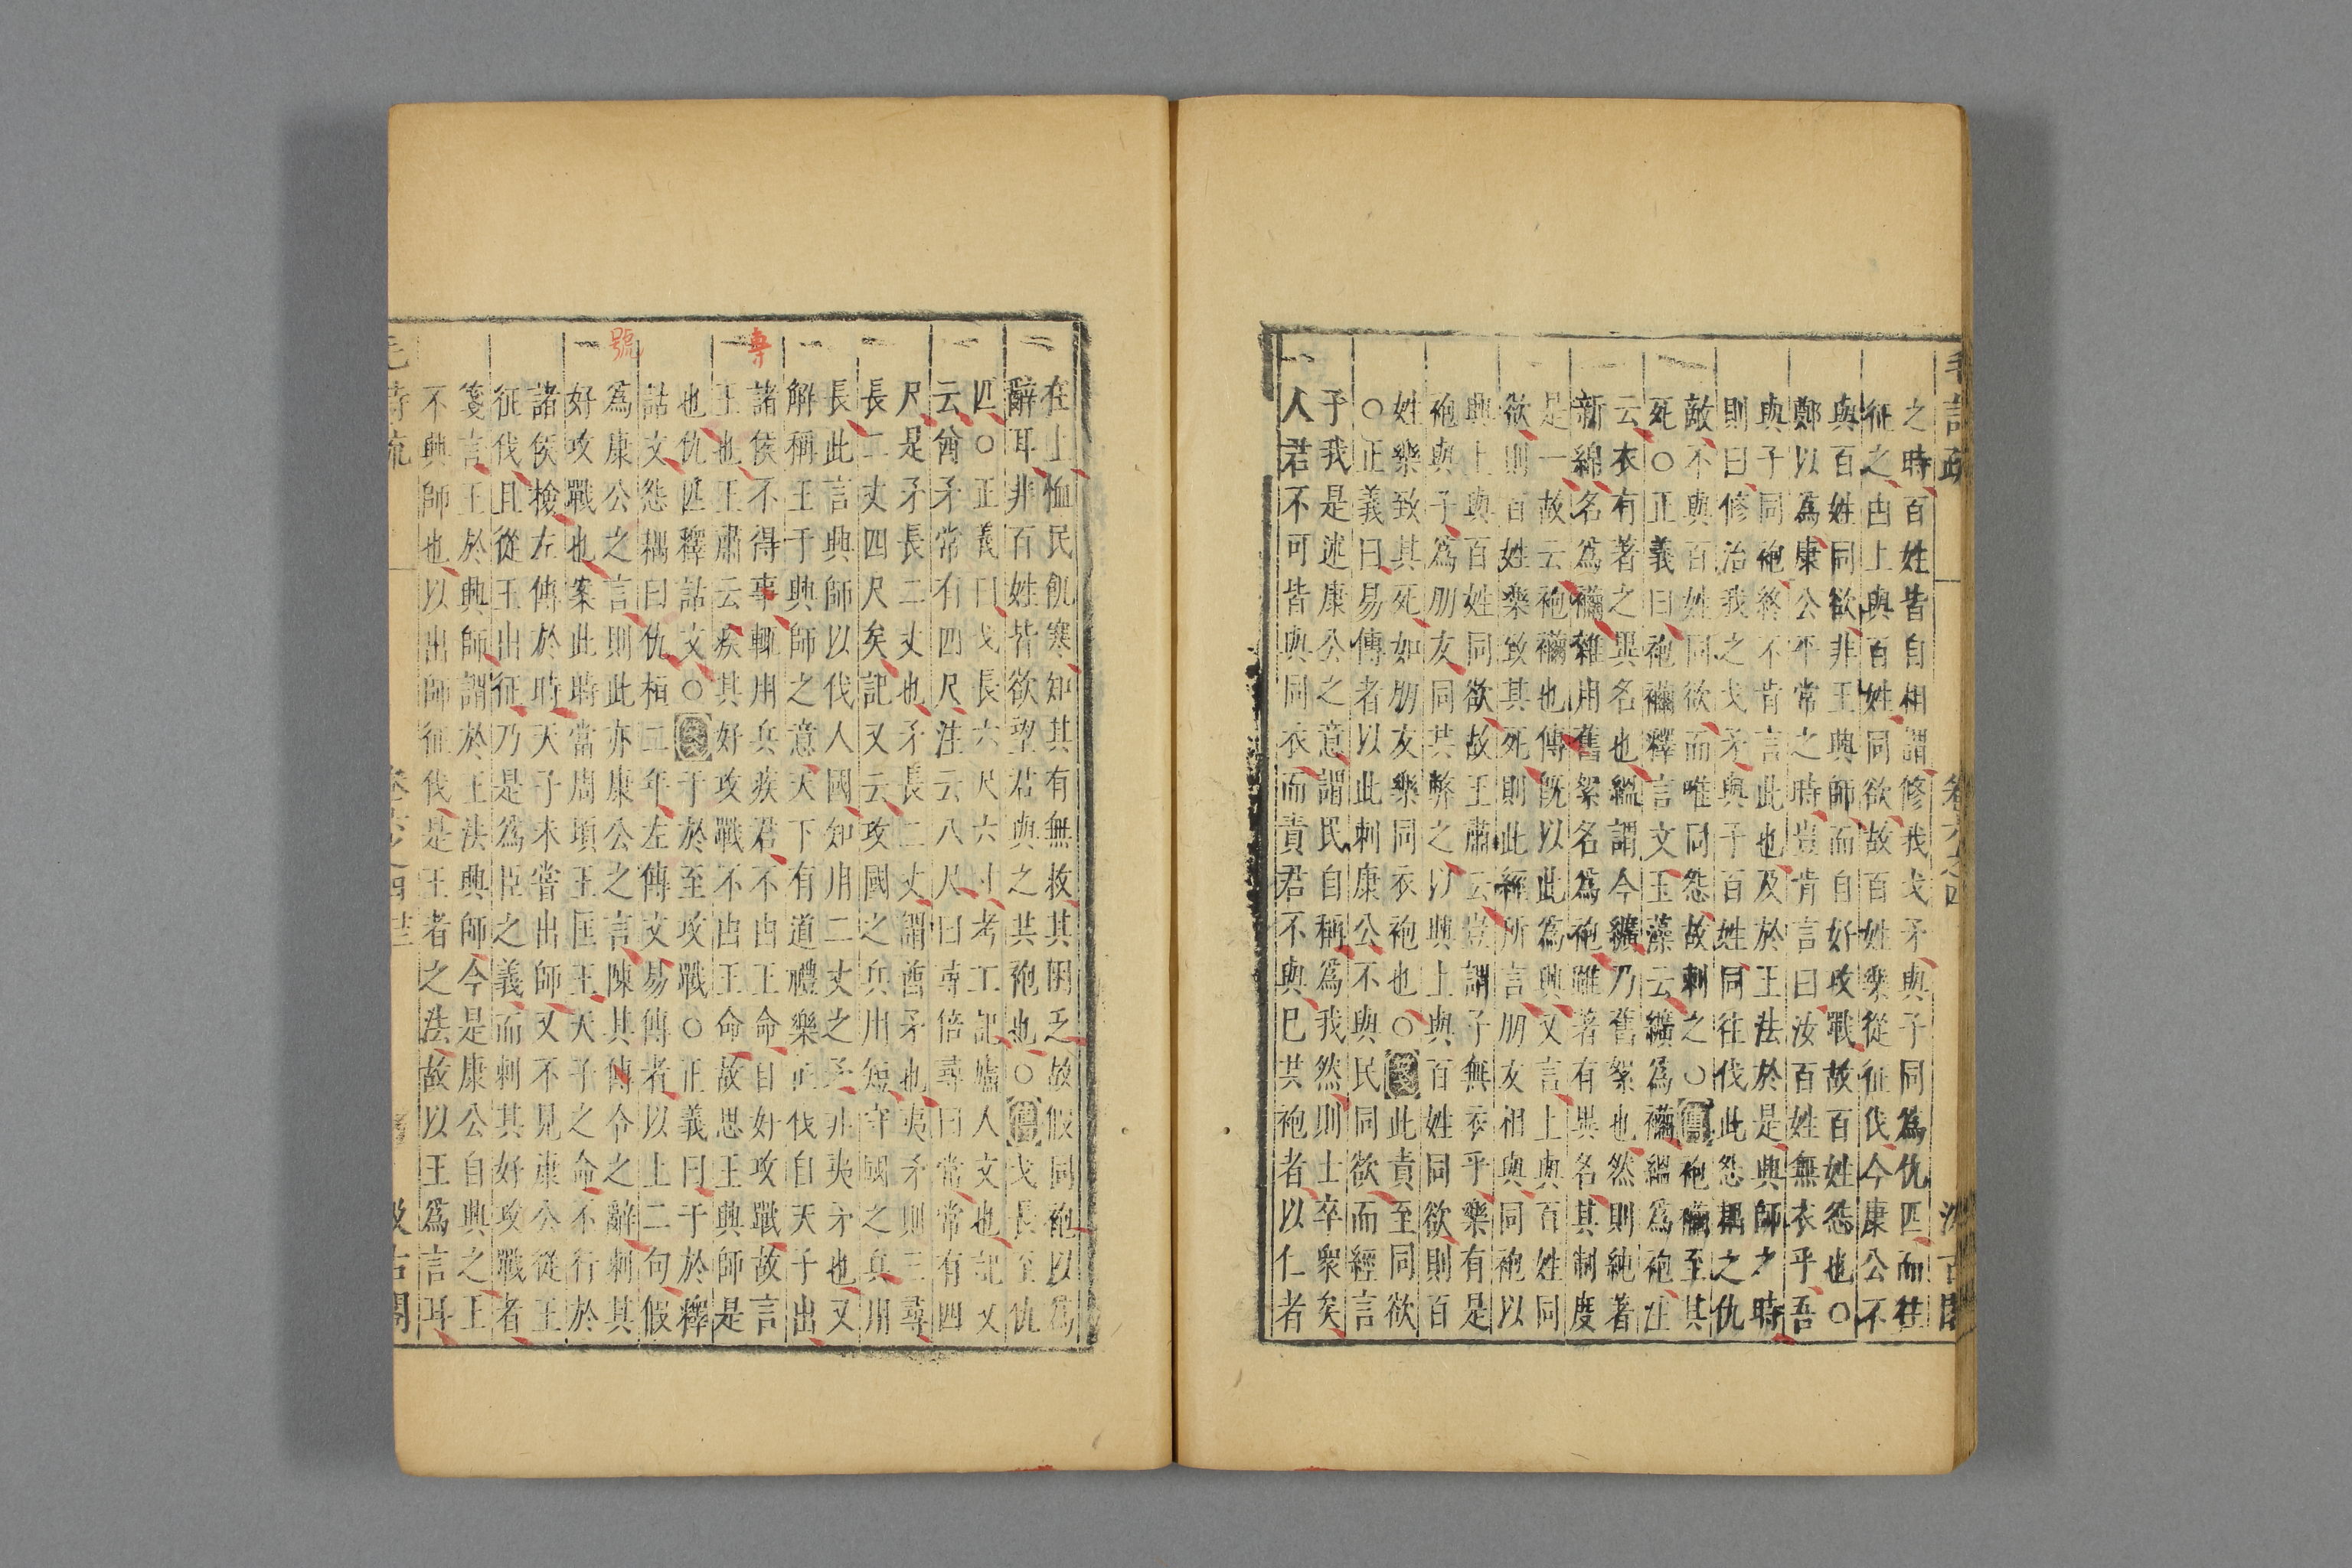 毛詩疏 卷六之四 汲古閣
之時百姓皆自相謂修我戈矛與子同為仇匹而往
征之由上與百姓同欲故百姓樂從征伐今康公不
與百姓同欲非王興師而自好攻戰故百姓怨也○
鄭以為康公平常之時豈肯言曰汝百姓無衣乎吾
與子同袍終不肯言此也及於王法於是興師之時
則曰修治我之戈矛與子百姓同往伐此怨耦之仇
敵不與百姓同欲而唯同怨故刺之○傳袍襺至其
死○正義曰袍襺釋言文玉藻云纊為襺縕為袍注
云衣有著之異名也縕謂今纊乃舊絮也然則純著
新綿名為襺雜用舊絮名為袍雖著有異名其制度
是一故云袍襺也傳既以此為興又言上與百姓同
欲則百姓樂致其死則此經所言朋友相與同袍以
興上與百姓同欲故王肅云豈謂子無衣乎樂有是
袍與子為朋友同其弊之以興上與百姓同欲則百
姓樂致其死如朋友樂同衣袍也○箋此責至同欲
○正義曰易傳者以此刺康公不與民同欲而經言
予我是述康公之意謂民自稱為我然則士卒眾矣
人君不可皆與同衣而責君不與已共袍者以仁者
在上恤民飢寒知其有無救其困乏故假同袍以為
辭耳非百姓皆欲望君與之共袍也○傳戈長至仇
匹○正義曰戈長六尺六寸考工記廬人文也記又
云酋矛常有四尺注云八尺曰尋倍尋曰常常有四
尺是矛長二丈也矛長二丈謂酋矛也夷矛則三尋
長二丈四尺矣記又云攻國之兵用短守國之兵用
長此言興師以伐人國知用二丈之矛非夷矛也又
解稱王于興師之意天下有道禮樂征伐自天子出
諸侯不得事輒用兵疾君不由王命自好攻戰故言
王也王肅云疾其好攻戰不由王命故思王興師是
也仇匹釋詁文○箋于於至攻戰○正義曰于於釋
詁文怨耦曰仇桓二年左傳文易傳者以上二句假
為康公之言則此亦康公之言陳其傳令之辭刺其
號
好攻戰也案此時當周頃王匡王天子之命不行於
諸侯檢左傳於時天子未嘗出師又不見康公從王
征伐且從王出征乃是為臣之義而刺其好攻戰者
箋言王於興師謂於王法興師今是康公自興之王
不興師也以出師征伐是王者之法故以王為言耳
毛詩疏 卷六之四 汲古閣